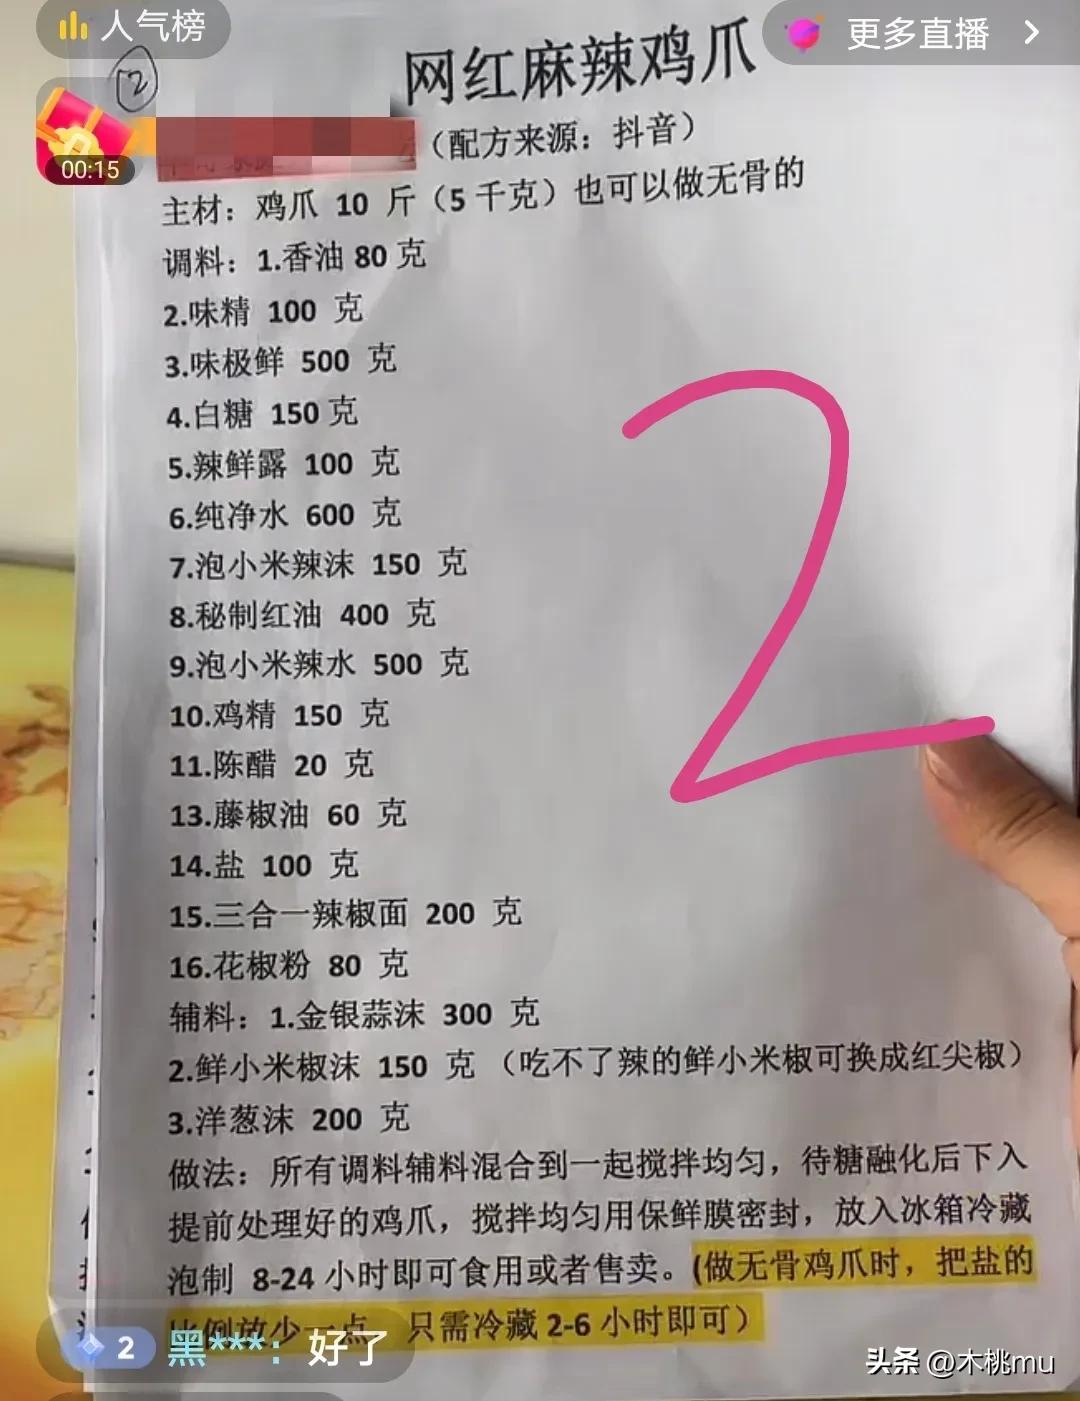 人气榜
更多直播
2
网红麻辣鸡爪
00:15
（配方来源：抖音）
主材：鸡爪 10 斤（5 千克）也可以做无骨的
调料：1.香油 80 克
2.味精 100 克
3.味极鲜 500 克
4.白糖 150 克
5.辣鲜露 100 克
6.纯净水 600 克
7.泡小米辣沫 150 克
8.秘制红油 400 克
9.泡小米辣水 500 克
10.鸡精 150 克
11.陈醋 20 克
13.藤椒油 60 克
14.盐 100 克
15.三合一辣椒面 200 克
16.花椒粉 80 克
辅料：1.金银蒜沫 300 克
2.鲜小米椒沫 150 克（吃不了辣的鲜小米椒可换成红尖椒）
3.洋葱沫 200 克
2
做法：所有调料辅料混合到一起搅拌均匀，待糖融化后下入
提前处理好的鸡爪，搅拌均匀用保鲜膜密封，放入冰箱冷藏
泡制 8-24 小时即可食用或者售卖。(做无骨鸡爪时，把盐的
比例放少一点 只需冷藏 2-6 小时即可）
2 黑***：好了
头条 @木桃mu